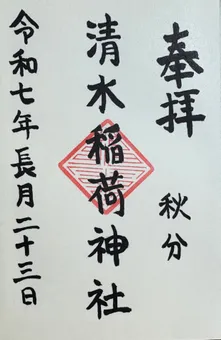 奉拝
秋分
清水稲荷神社
令和七年長月二十三日